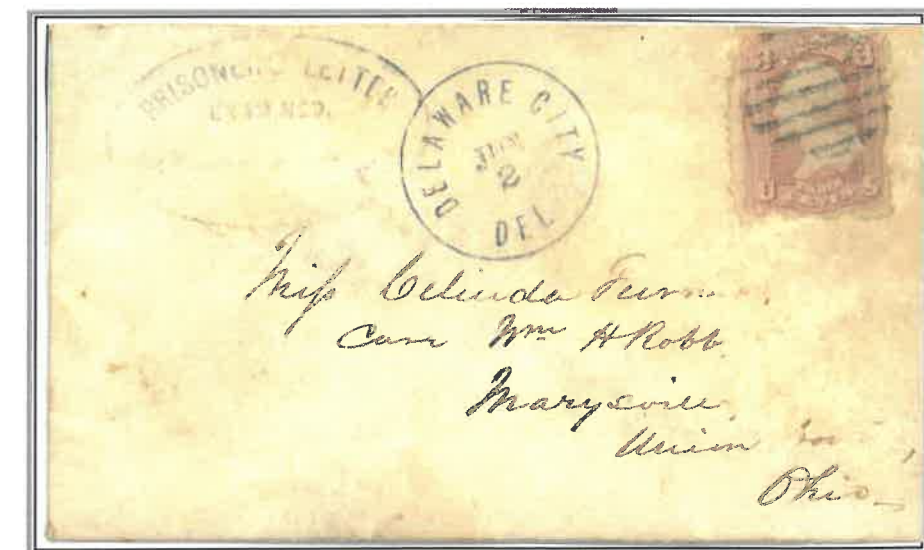 PRISONER'S LETTER
EXAMINED.
DELAWARE CITY
JUN
2
DEL
3 3
U S
Miss Celinda
Care Wm H Robb
Marysville
Union
Ohio